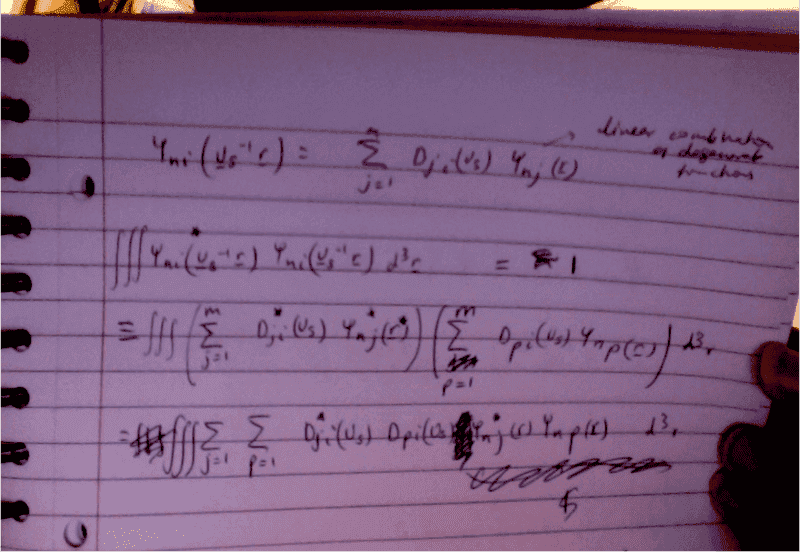 Ψni (υs⁻¹ r) = Σ_{j=1}^{n} Dji(υs) Ψnj(r) → linear combination
of degenerate
functions
∫∫∫ Ψni*(υs⁻¹ r) Ψni(υs⁻¹ r) d³r = 1
≡ ∫∫∫ ( Σ_{j=1}^{m} Dji*(υs) Ψnj*(r*) ) ( Σ_{p=1}^{m} Dpi(υs) Ψnp(r) ) d³r
= ∫∫∫ Σ_{j=1} Σ_{p=1} Dji*(υs) Dpi(υs) Ψnj*(r) Ψnp(r) d³r